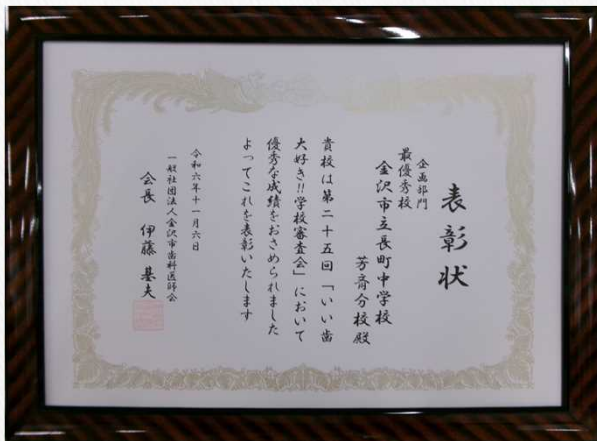 表彰状
企画部門
最優秀校
金沢市立長町中学校
芳斉分校殿
貴校は第二十五回「いい歯
大好き!!学校審査会」において
優秀な成績をおさめられました
よってこれを表彰いたします
令和六年十一月六日
一般社団法人金沢市歯科医師会
会長 伊藤基夫